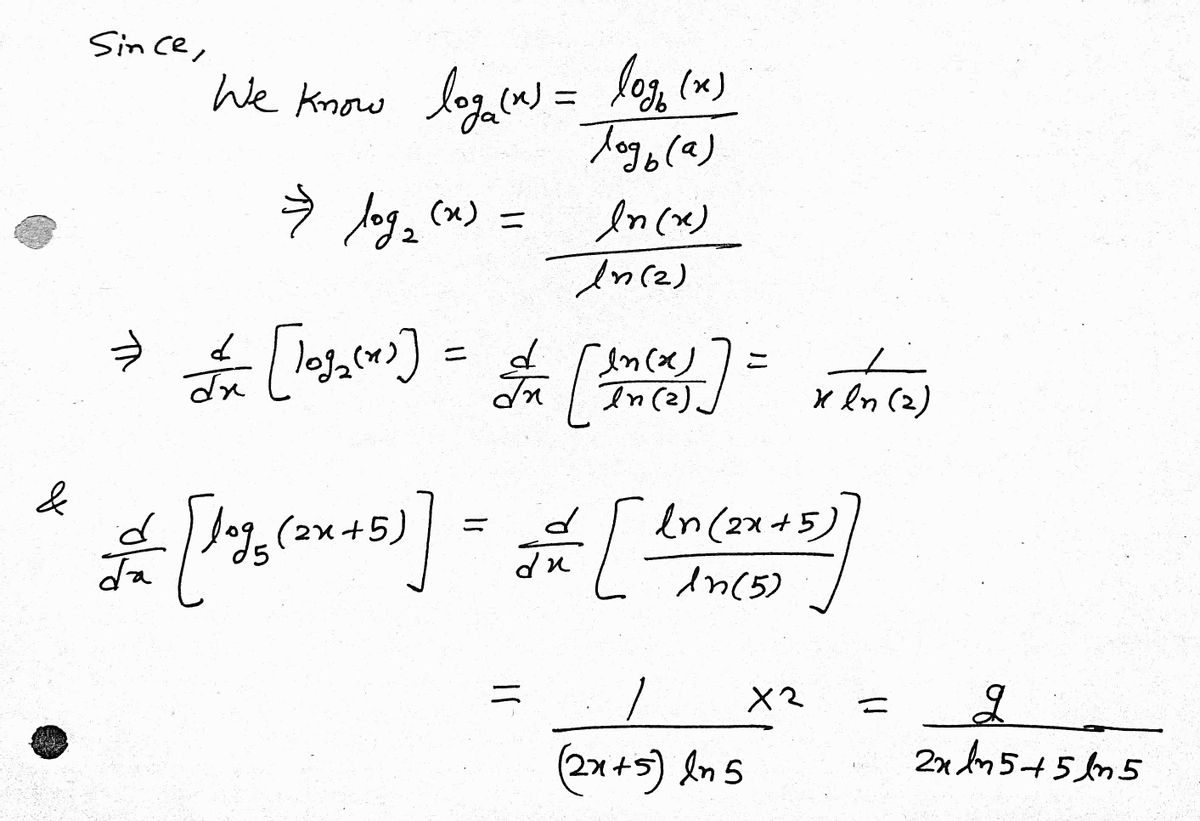 Since,
We know log_a(x) = log_b(x) / log_b(a)
⇒ log_2(x) = ln(x) / ln(2)
⇒ d/dx [log_2(x)] = d/dx [ln(x) / ln(2)] = 1 / x ln(2)
& d/dx [log_5(2x+5)] = d/dx [ln(2x+5) / ln(5)]
= 1 / (2x+5) ln5 ×2 = 2 / 2x ln5 + 5 ln5